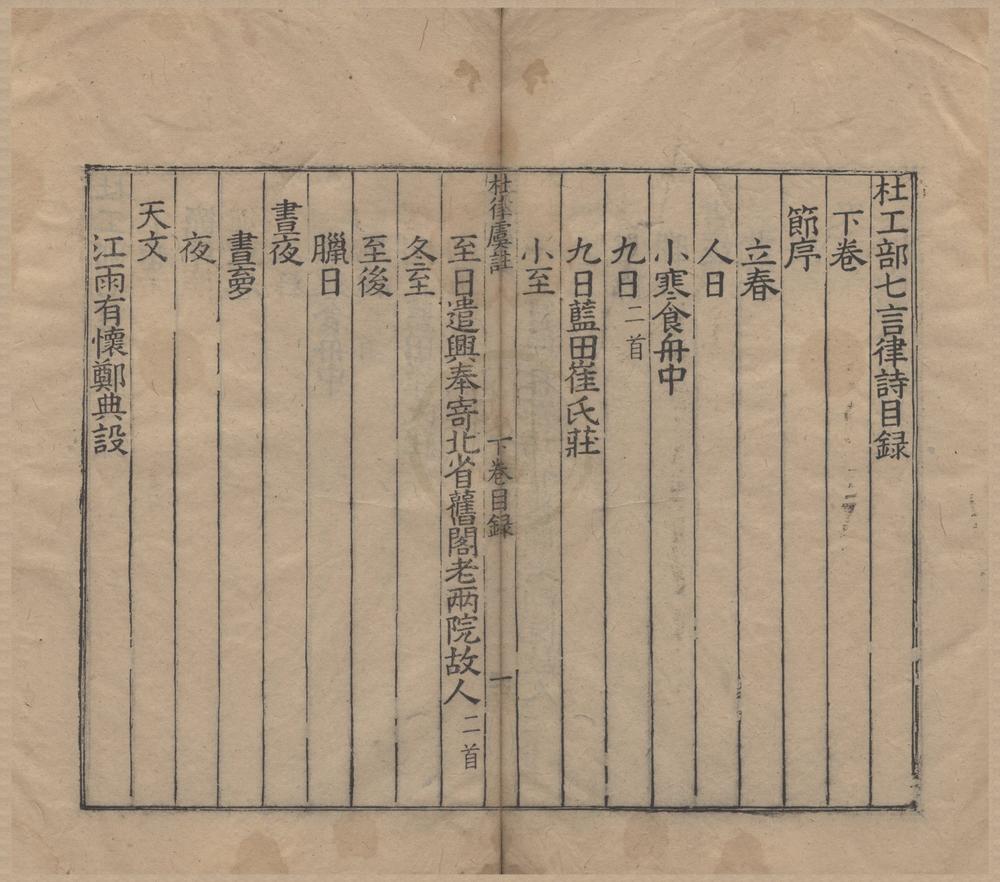 杜工部七言律詩目録
下巻
節序
立春
人日
小寒食舟中
九日二首
九日藍田崔氏莊
小至
杜律虞註 下巻目録 一
至日遣興奉寄北省舊閣老兩院故人二首
冬至
至後
臘日
晝夜
晝夢
夜
天文
江雨有懷鄭典設